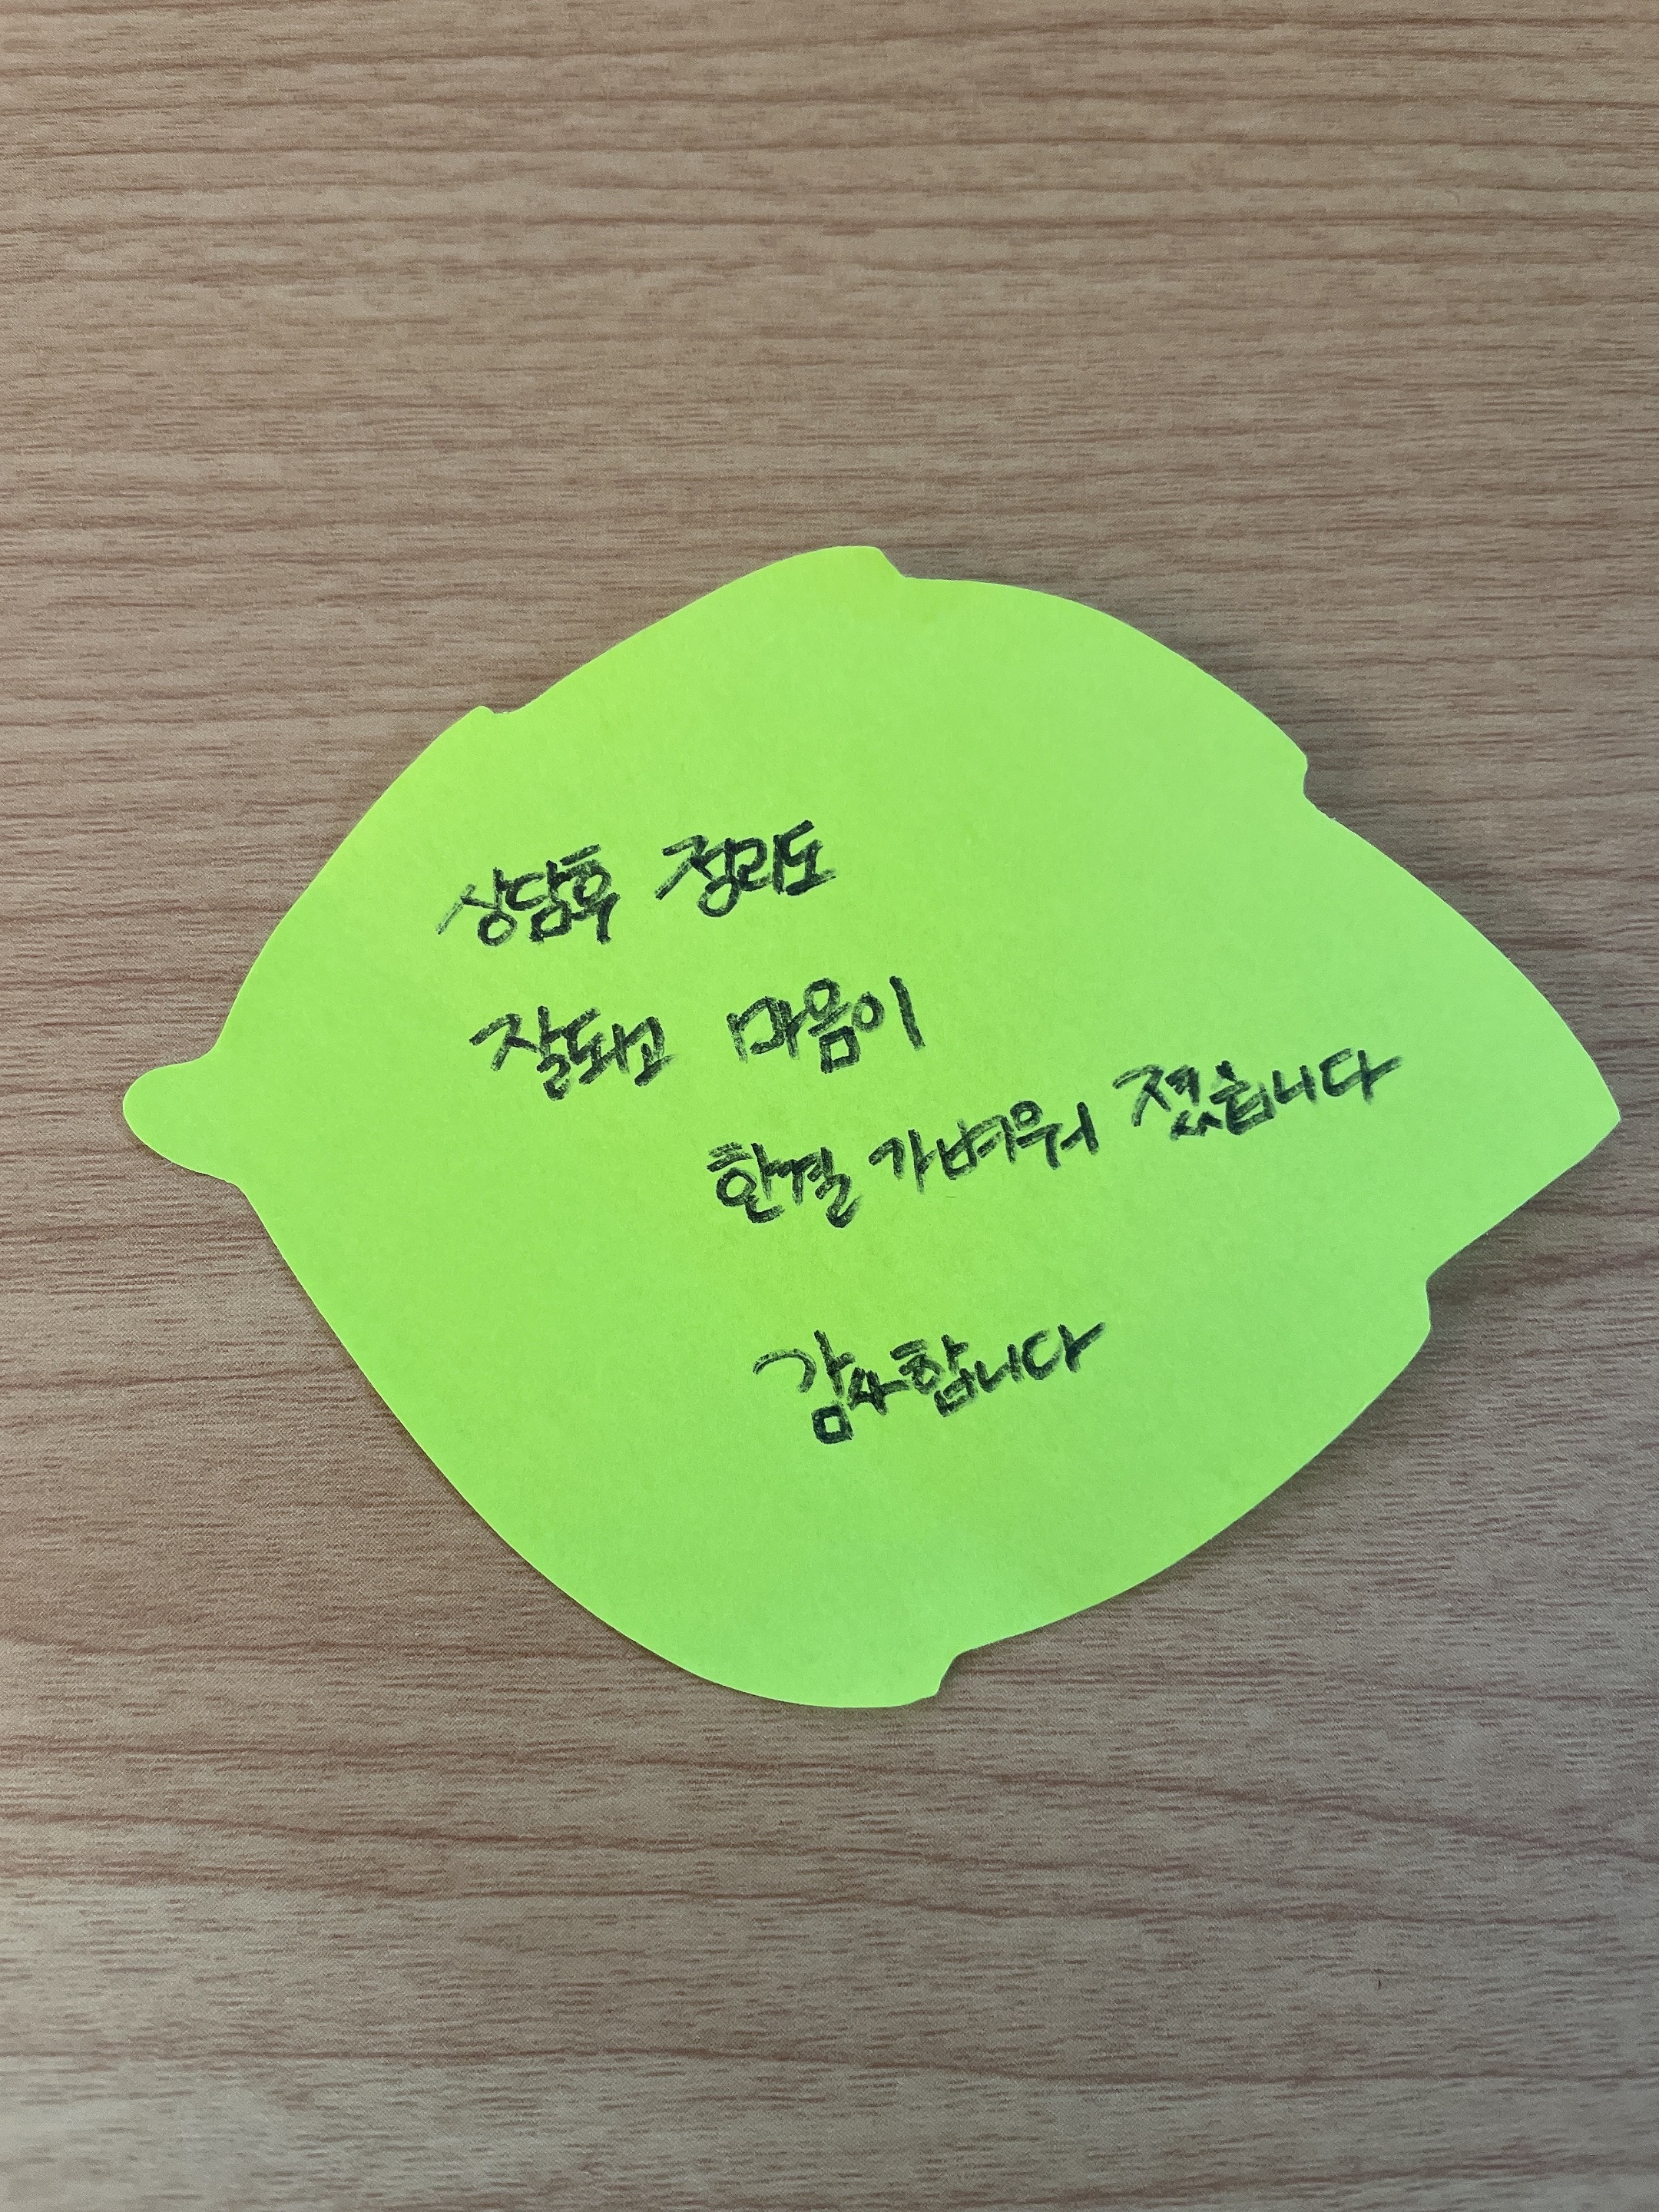 상담후 정리도
잘되고 마음이
한결 가벼워 졌습니다
감사합니다